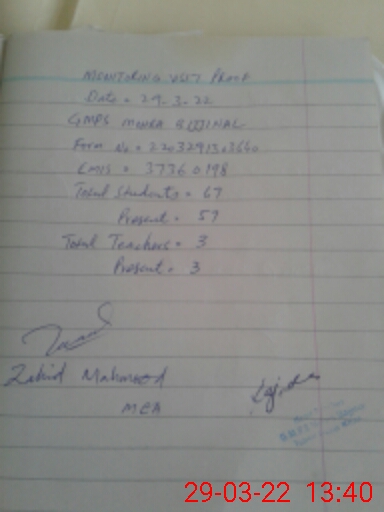 MONITORING VISIT PROOF
Date = 29.3.22
GMPS
Form No = 2203291303660
EMIS = 37360198
Total Students = 67
Present = 57
Total Teachers = 3
Present = 3
Zahid Mahmood
MEA
29-03-22 13:40